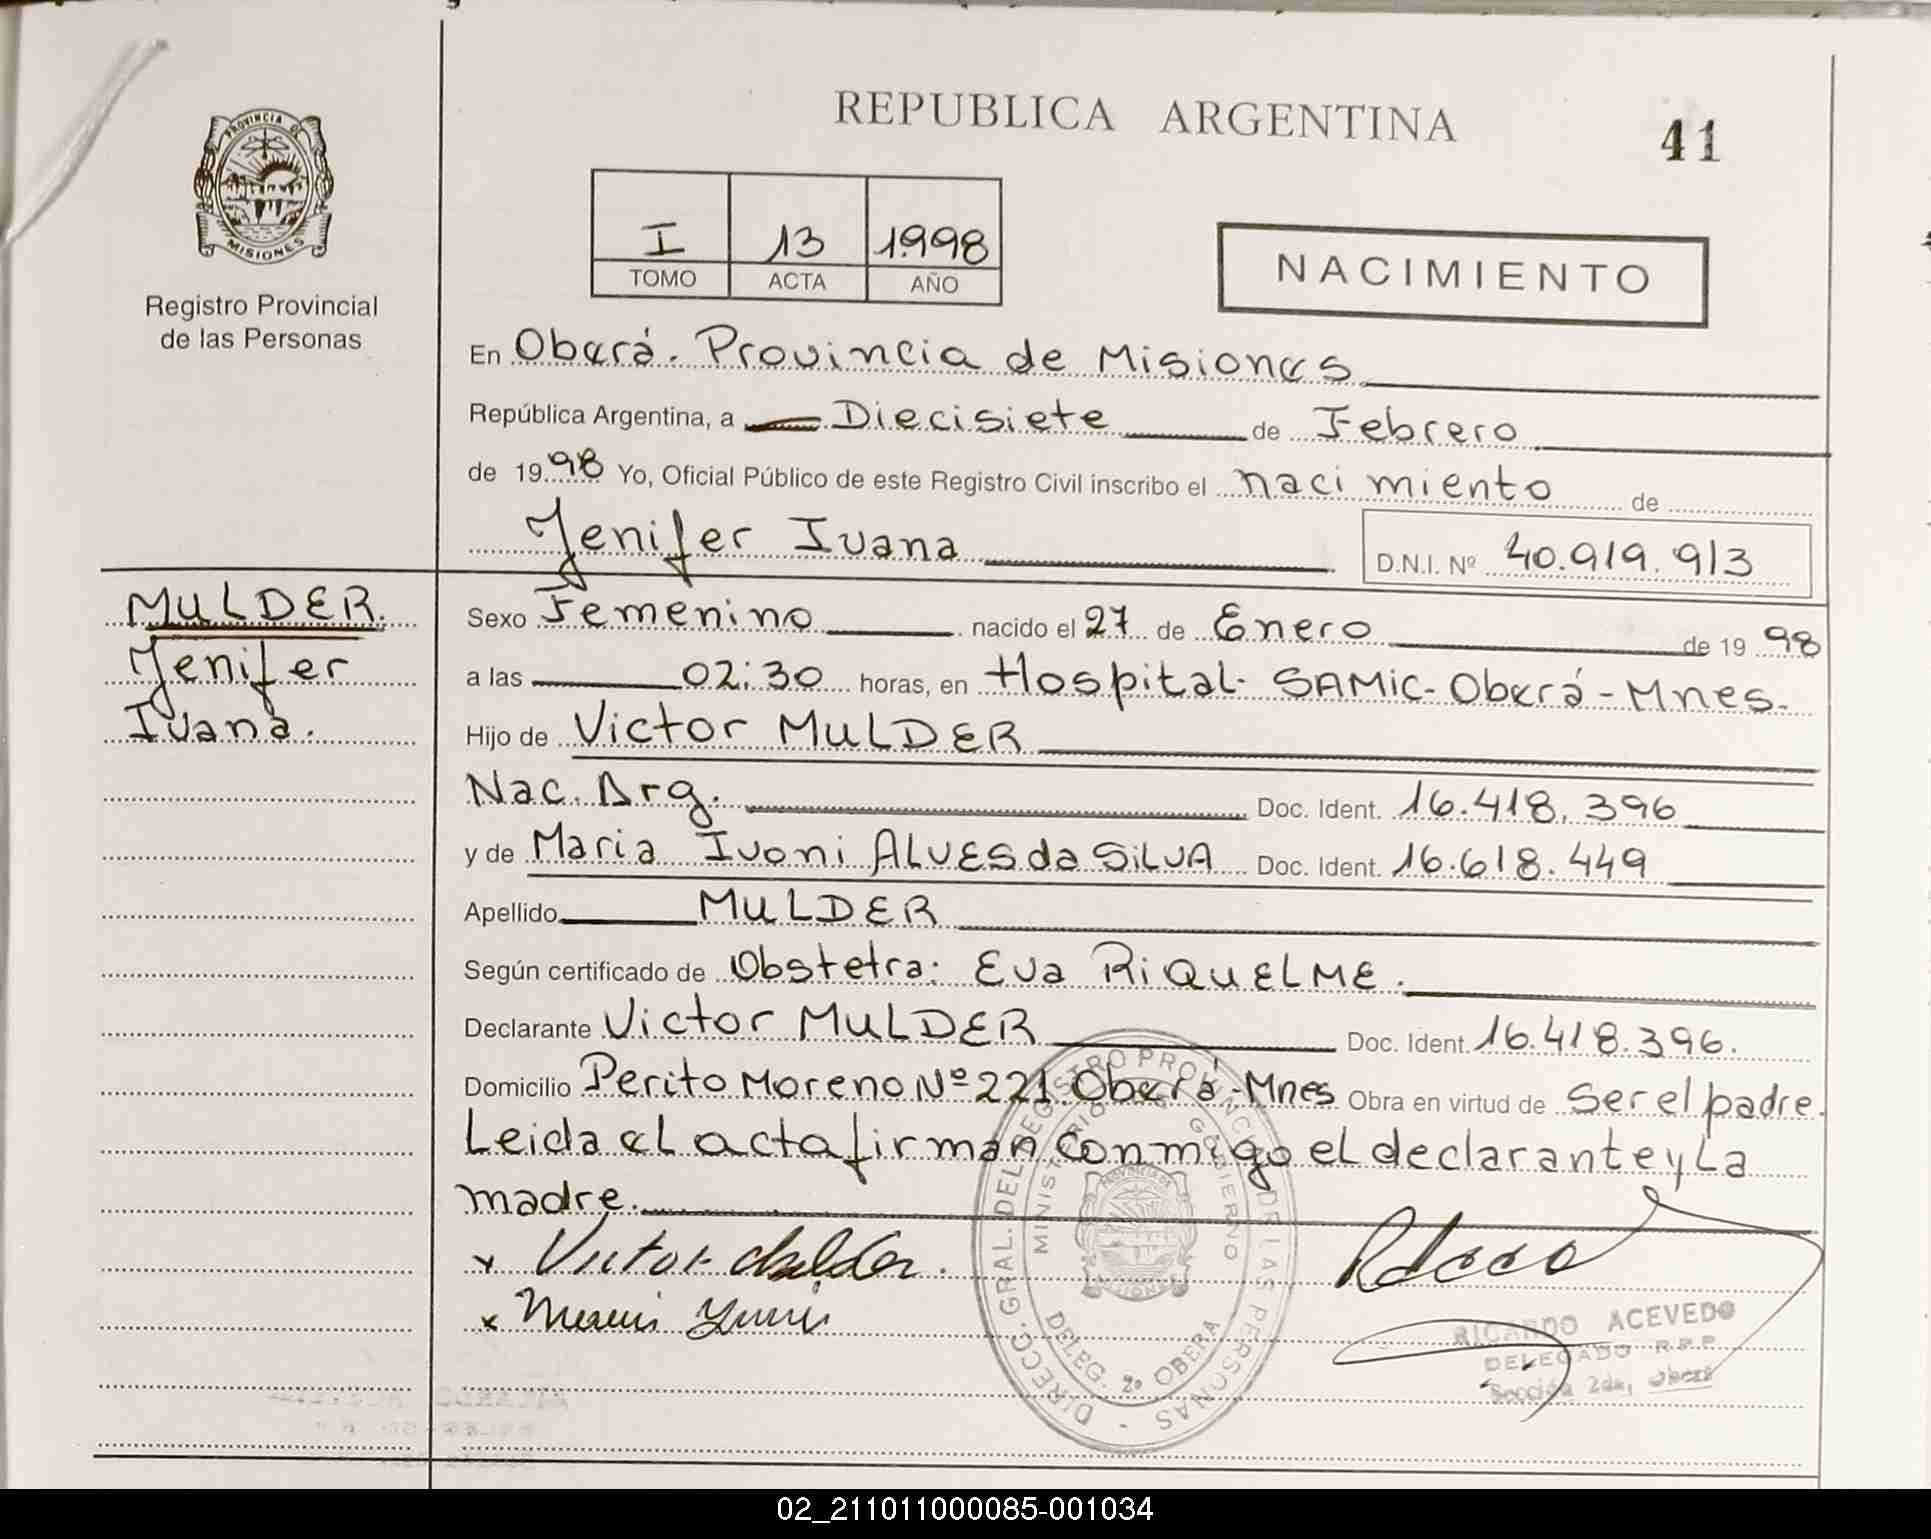 REPUBLICA ARGENTINA
41
PROVINCIA DE
MISIONES
Registro Provincial
de las Personas
I 13 1.998
TOMO ACTA AÑO
NACIMIENTO
En Oberá. Provincia de Misiones
República Argentina, a Diecisiete de Febrero
de 1998 Yo, Oficial Público de este Registro Civil inscribo el nacimiento de
Yenifer Ivana D.N.I. Nº 40.919.913
MULDER.
Yenifer
Ivana.
Sexo Femenino nacido el 27 de Enero de 1998
a las 02:30 horas, en Hospital- SAMIC-Oberá-Mnes.
Hijo de Victor MULDER
Nac. Arg. Doc. Ident. 16.418.396
y de Maria Ivoni ALVES da SILVA Doc. Ident. 16.618.449
Apellido MULDER
Según certificado de Obstetra: Eva RIQUELME.
Declarante Victor MULDER Doc. Ident. 16.418.396.
Domicilio Perito Moreno Nº 221. Oberá-Mnes Obra en virtud de Ser el padre.
Leida el acta firman conmigo el declarante y La
madre.
x Victor Mulder.
x
DIRECC. GRAL. DEL REGISTRO PROVINCIAL DE LAS PERSONAS -
MINISTERIO DE GOBIERNO
DELEG. 2º OBERA
RICARDO ACEVEDO
DELEGADO R.P.P.
Sección 2da, Oberá
02_211011000085-001034